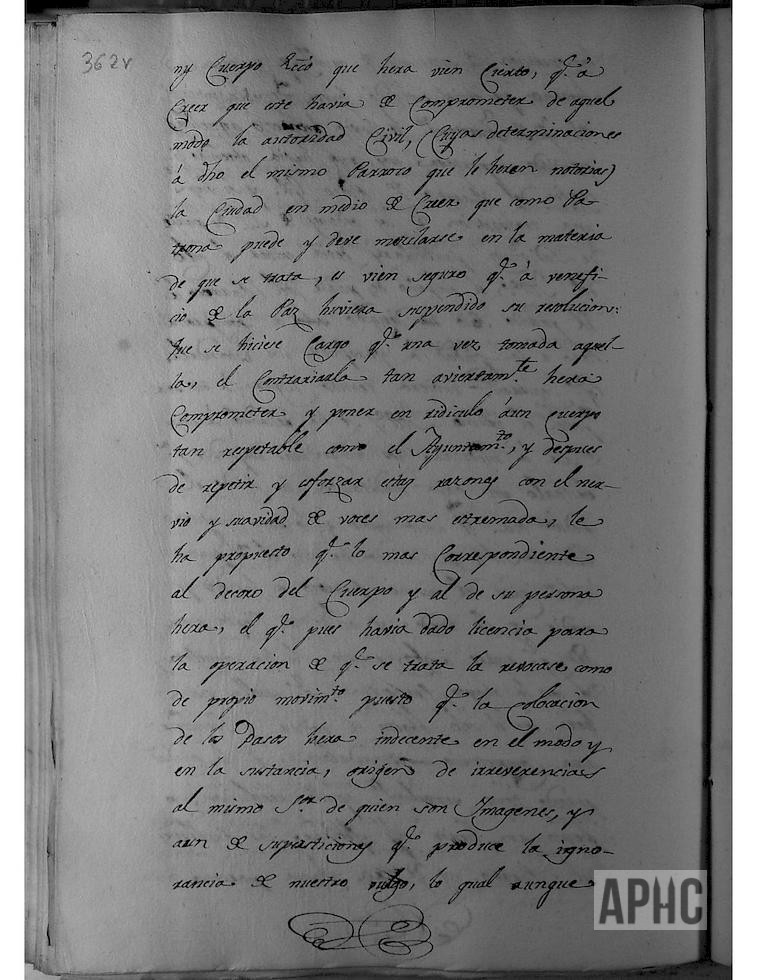 362v
ny Cuerpo Ecc.co que hera vien Cierto, q.e à
Creer que este havia de Comprometer de aquel
modo la autoridad Civil, (Cuyas determinaciones
à dho el mismo Parroco que le heren notorias)
la Ciudad en medio de Creer que como Pa-
trona puede y deve mezclarse en la materia
de que se trata, es vien seguro q.e à venefi-
cio de la Paz huviera suspendido su resolucion:
que se hiciese Cargo q.e una vez tomada aquel-
la, el Contrariarla tan aviertam.te hera
Comprometer y poner en ridiculo áun cuerpo
tan respetable como el Ayuntam.to, y despues
de repetir y esforzar estas razones con el ner-
vio y suavidad de voces mas estremada, le
ha propuesto q.e lo mas Correspondiente
al decoro del Cuerpo y al de su persona
hera, el q.e pues havia dado licencia para
la operacion de q.e se trata la revocase como
de propio movim.to puesto q.e la Colocacion
de los Pasos hera indecente en el modo y
en la sustancia, origen de irreverencias
al mismo S.or de quien son Imagenes, y
aun de supersticiones q.e produce la igno-
rancia de nuestro vulgo, lo qual aunque
APHC